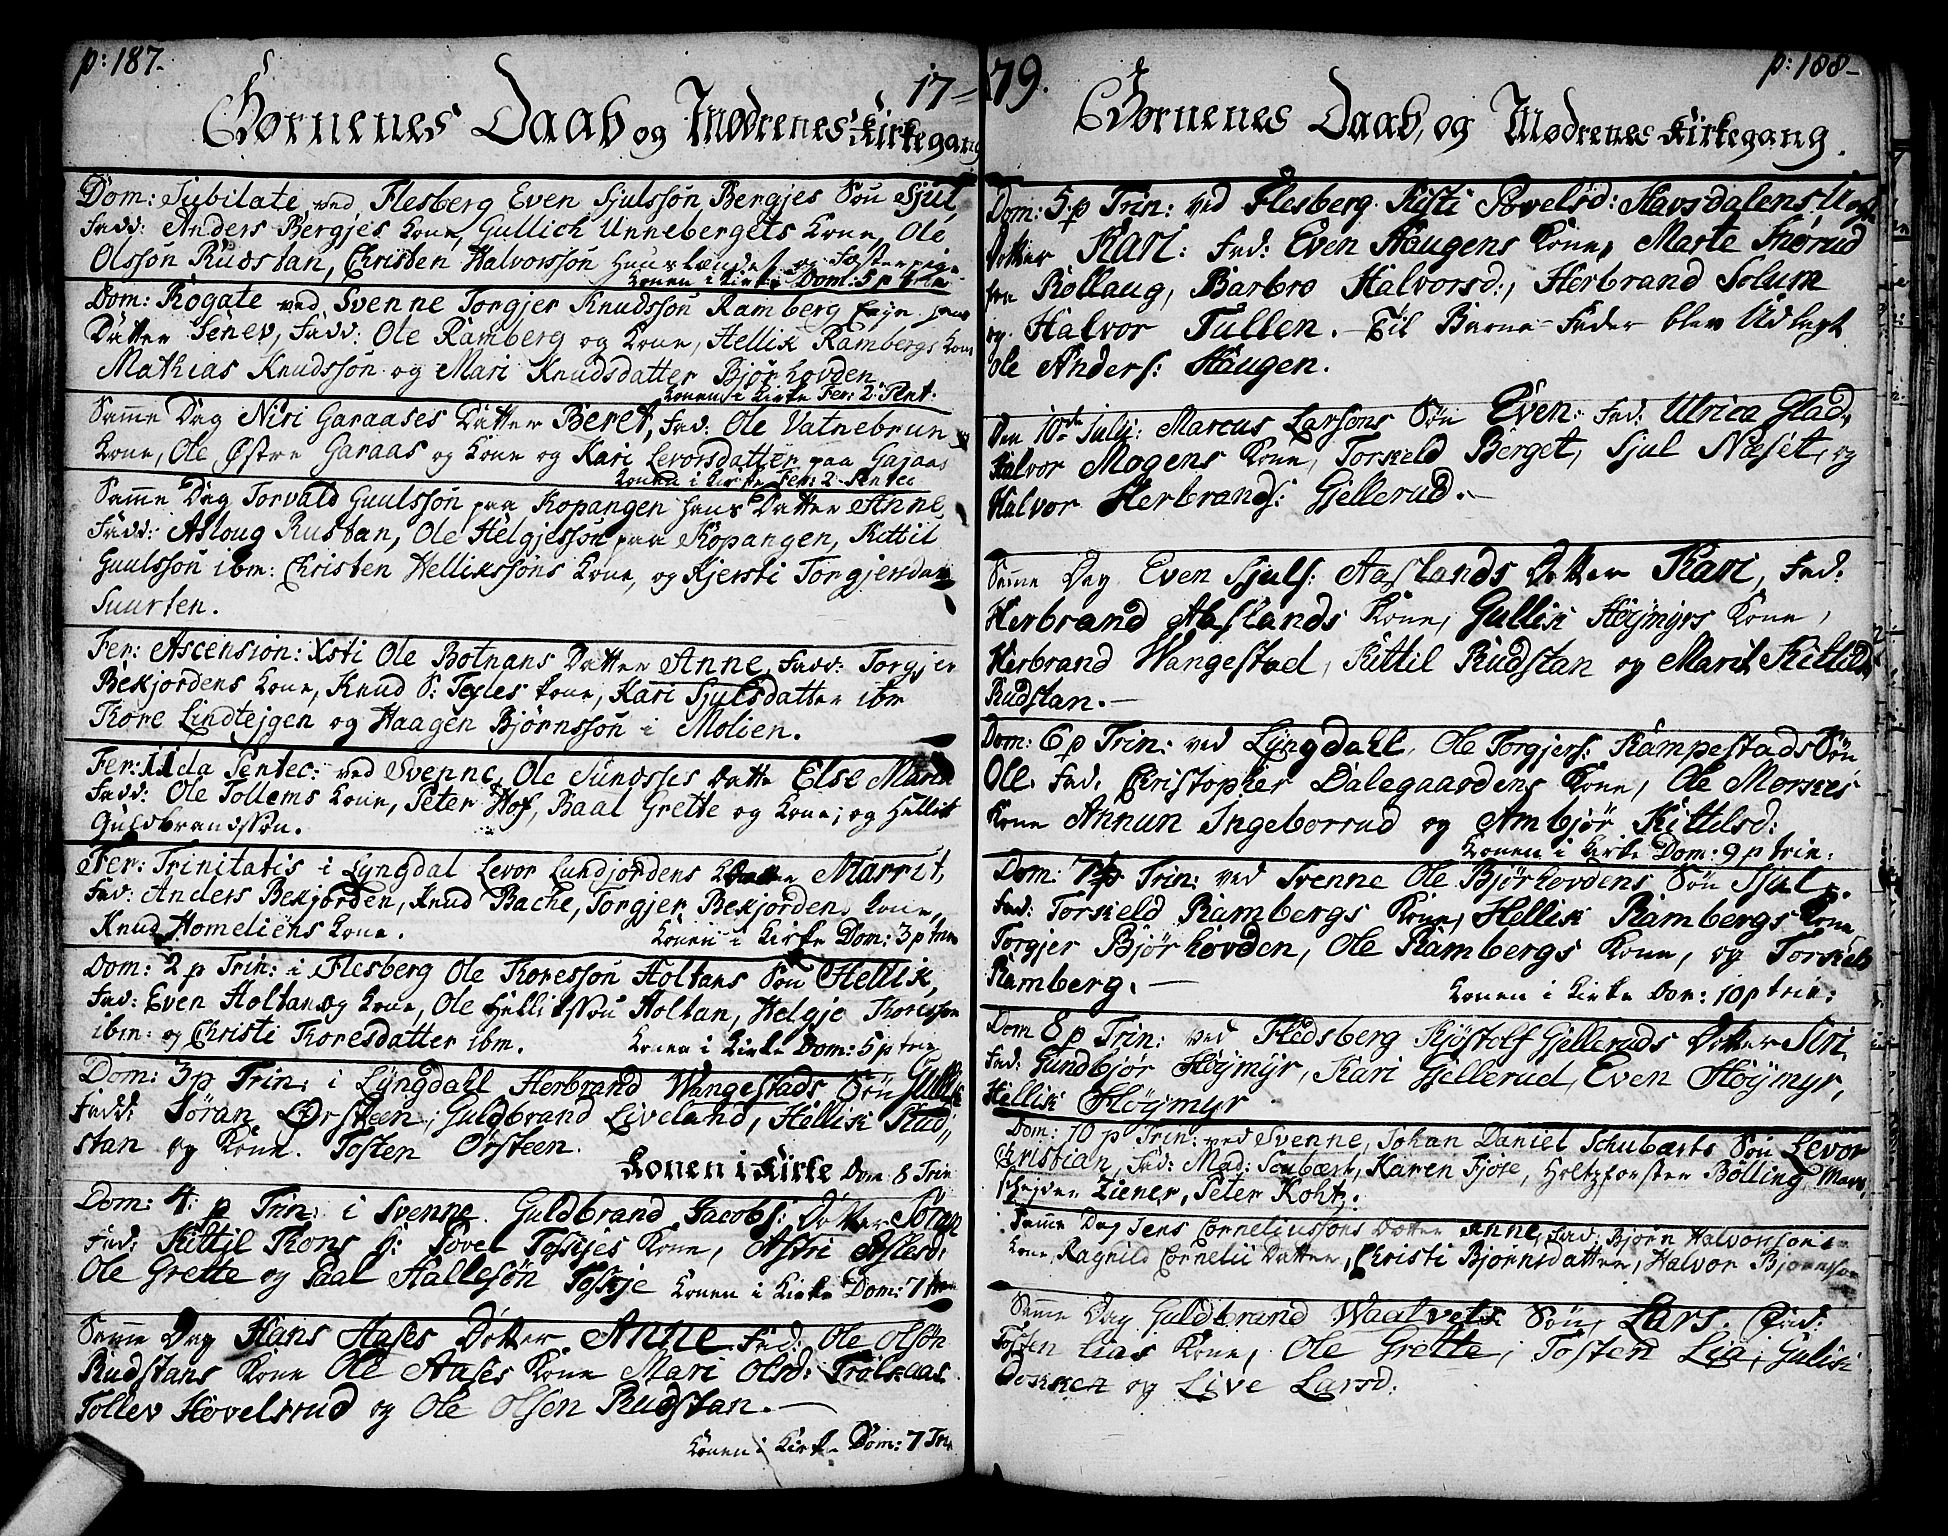 p: 187.
17
Børnenes Daab og Mødrenes Kirkegang
Dom: Jubilate ved Flesberg Even Sjulssøn Bergjes Søn Sjul,
Fadd: Anders Bergjes Kone, Gullich Unnebergets Kone, Ole
Olssøn Rudstan, Christen Halvorssøn
Konen i Kirke Dom: 5 p
Dom: Rogate ved Svenne Torgjer Knudssøn Ramberg
Datter Senev, Fadd: Ole Ramberg og Kone, Hellik Rambergs Kone
Mathias Knudssøn og Mari Knudsdatter Bjørhovden
Konen i Kirke Fer: 2 Pent:
Samme Dag Niri Garaases Datter Beret, Fad: Ole Vatnebrun
Kone, Ole Østre Garaas og Kone og Kari Levorsdatter paa Garaas
Konen i Kirke Fer: 2 Pentec
Samme Dag Torvald Guulssøn paa Kopangen hans Datter Anne,
Fadd: Asloug Rustan, Ole Helgjessøn paa Kopangen, Kittil
Guulssøn ibm: Christen Hellikssøns Kone, og Kjersti Torgjersdat
Suurten.
Fer: Ascension: Xsti Ole Botnans Datter Anne, Fadd: Torgjer
Bekjordens Kone, Knud S: Teyles Kone, Kari Sjulsdatter ibm
Tore Lindtejgen og Haagen Bjørnssøn i Molien.
Fer: IIda Pentec: ved Svenne, Ole Sundsses Datte Else Maria
Fadd: Ole Tollems Kone, Peter Hof, Baal Grette og Kone; og Hellik
Guldbrandssøn.
Fer: Trinitatis i Lyngdal Levor Lundjordens Datter Marrit,
Fad: Anders Bekjorden, Knud Bache, Torgjer Bekjordens Kone,
Knud Homeliens Kone.
Konen i Kirke Dom: 3 p trin
Dom: 2 p Trin: i Flesberg Ole Toressøn Holtans Søn Hellik,
Fad: Even Holtans og Kone, Ole Hellikssøn Holtan, Helgje Toressøn
ibm: og Christi Toresdatter ibm.
Konen i Kirke Dom: 5 p trin
Dom: 3 p Trin: i Lyngdahl Herbrand Wangestads Søn Gullik
Fadd: Søran Ørsteen, Guldbrand Liveland, Hellik Rud,,
stan og Kone. Tosten Orsteen.
Konen i Kirke Dom 8 Trin
Dom: 4: p Trin: i Svenne Guldbrand Jacobs: Dotter Søran
Fad: Kittil Kons Povel Toskjes Kone, Astri
Ole Grette og Paal Hallesøn Toskje
Konen i Kirke Dom: 7 trin
Samme Dag Hans Aases Dotter Anne Fad: Ole Olsøn
Rudstans Kone Ole Aases Kone Mari Olsd: Trølsaas
Tollev Hovelsrud og Ole Olsen Rudstan.
Konen i Kirke Dom: 7 Trin
79.
p: 188
Børnenes Daab, og Mødrenes Kirkegang.
Dom: 5 p Trin: ved Flesberg Kisti Povelsd: Havsdalens
Dotter Kari: Fad: Even Haugens Kone, Marte Thorud
fra Rollaug, Barbro Halvorsd:, Herbrand Solum
og Halvor Tullen. Til Barne-Fader blev Udlagt
Ole Anders: Haugen.
Den 10de Julii: Marcus Larsøns Søn Even. Fad: Ulrica Glad,
Halvor Mogens Kone, Torskeld Berget, Sjul Næset, og
Halvor Herbrands: Gjellerud.
Samme Dag Even Sjuls: Aaslands Dotter Kari, Fad:
Herbrand Aaslands Kone, Gullik Høymyrs Kone,
Herbrand Wangestad, Kittil Rudstan og Marit Kittilsd
Rudstan.
Dom: 6 p Trin: ved Lyngdahl Ole Torgjers: Kampestads Søn
Ole. Fad: Christopher Dalegaardens Kone, Ole Morskes
Kone Annun Ingeborrud og Ambjør Kittilsd:
Konen i Kirke Dom: 9 p trin:
Dom: 7 p Trin: ved Svenne Ole Bjørhovdens Søn Sjul.
Fad: Torskeld Rambergs Kone, Hellik Rambergs Kone,
Torgjer Bjørhovden, Ole Rambergs Kone, og Torskeld
Ramberg.
Konen i Kirke Dom: 10 p trin:
Dom 8 p Trin: ved Fledsberg Kjøstolf Gjelleruds Dotter Siri
Fad: Gundbjør Høymyr, Kari Gjellerud, Even Høymyr,
Hellik Høymyr.
Dom: 10 p Trin: ved Svenne, Johan Daniel Schubærts Søn Levor
Christian, Fad: Mad: Scubært, Karen Fjøse, Holtzforster Bølling, Mark,
schejder Ziener, Peter Kohtz.
Samme Dag Jens Corneliussøns Dotter Anne, Fad: Bjørn Halvorssøns
Kone, Ragnild Cornelii Datter, Christi Bjørnsdatter, Halvor Bjørnssøn
Samme Dag Guldbrand Waalvets Søn Lars. Fad:
Tosten Lias Kone, Ole Grette, Tosten Lia, Gulik
Dokken og Live Larsd: